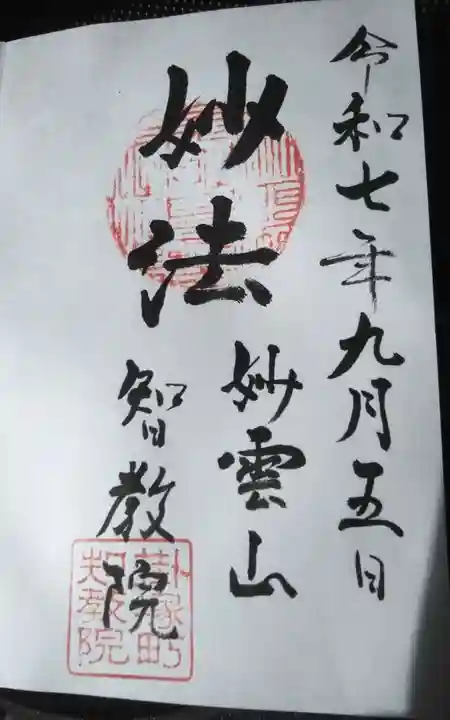 令和七年九月五日
妙法
妙雲山
智教院
智教院